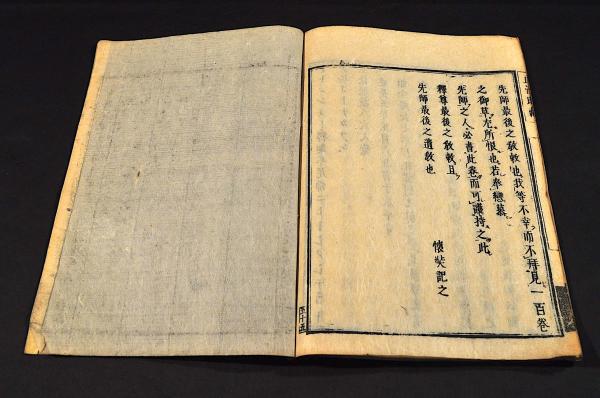 先師最後之敎敕也我等不幸而不拜見一百卷
之御草尤所恨也若奉戀慕
先師之人必書此卷而可護持之此
釋尊最後之敎敕且
先師最後之遺敎也
懷弉記之